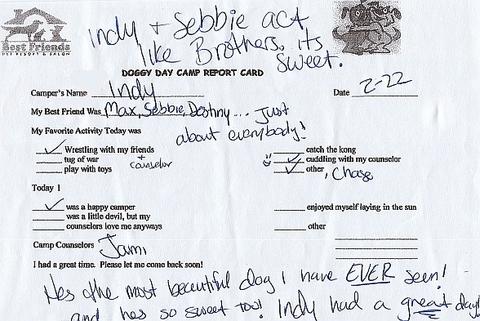 Indy + Sebbie act
like Brothers, its
sweet.
Best Friends
PET RESORT & SALON
DOGGY DAY CAMP REPORT CARD
Camper's Name Indy Date 2-22
My Best Friend Was Max, Sebbie, Destiny... Just
about everybody!
My Favorite Activity Today was
✓ Wrestling with my friends
+ counselor
tug of war
play with toys
catch the kong
✓ cuddling with my counselor
✓ other, Chase
Today I
✓ was a happy camper
was a little devil, but my
counselors love me anyways
enjoyed myself laying in the sun
other
Camp Counselors Jami
I had a great time. Please let me come back soon!
Hes the most beautiful dog I have EVER seen!
and hes so sweet too! Indy had a great day!